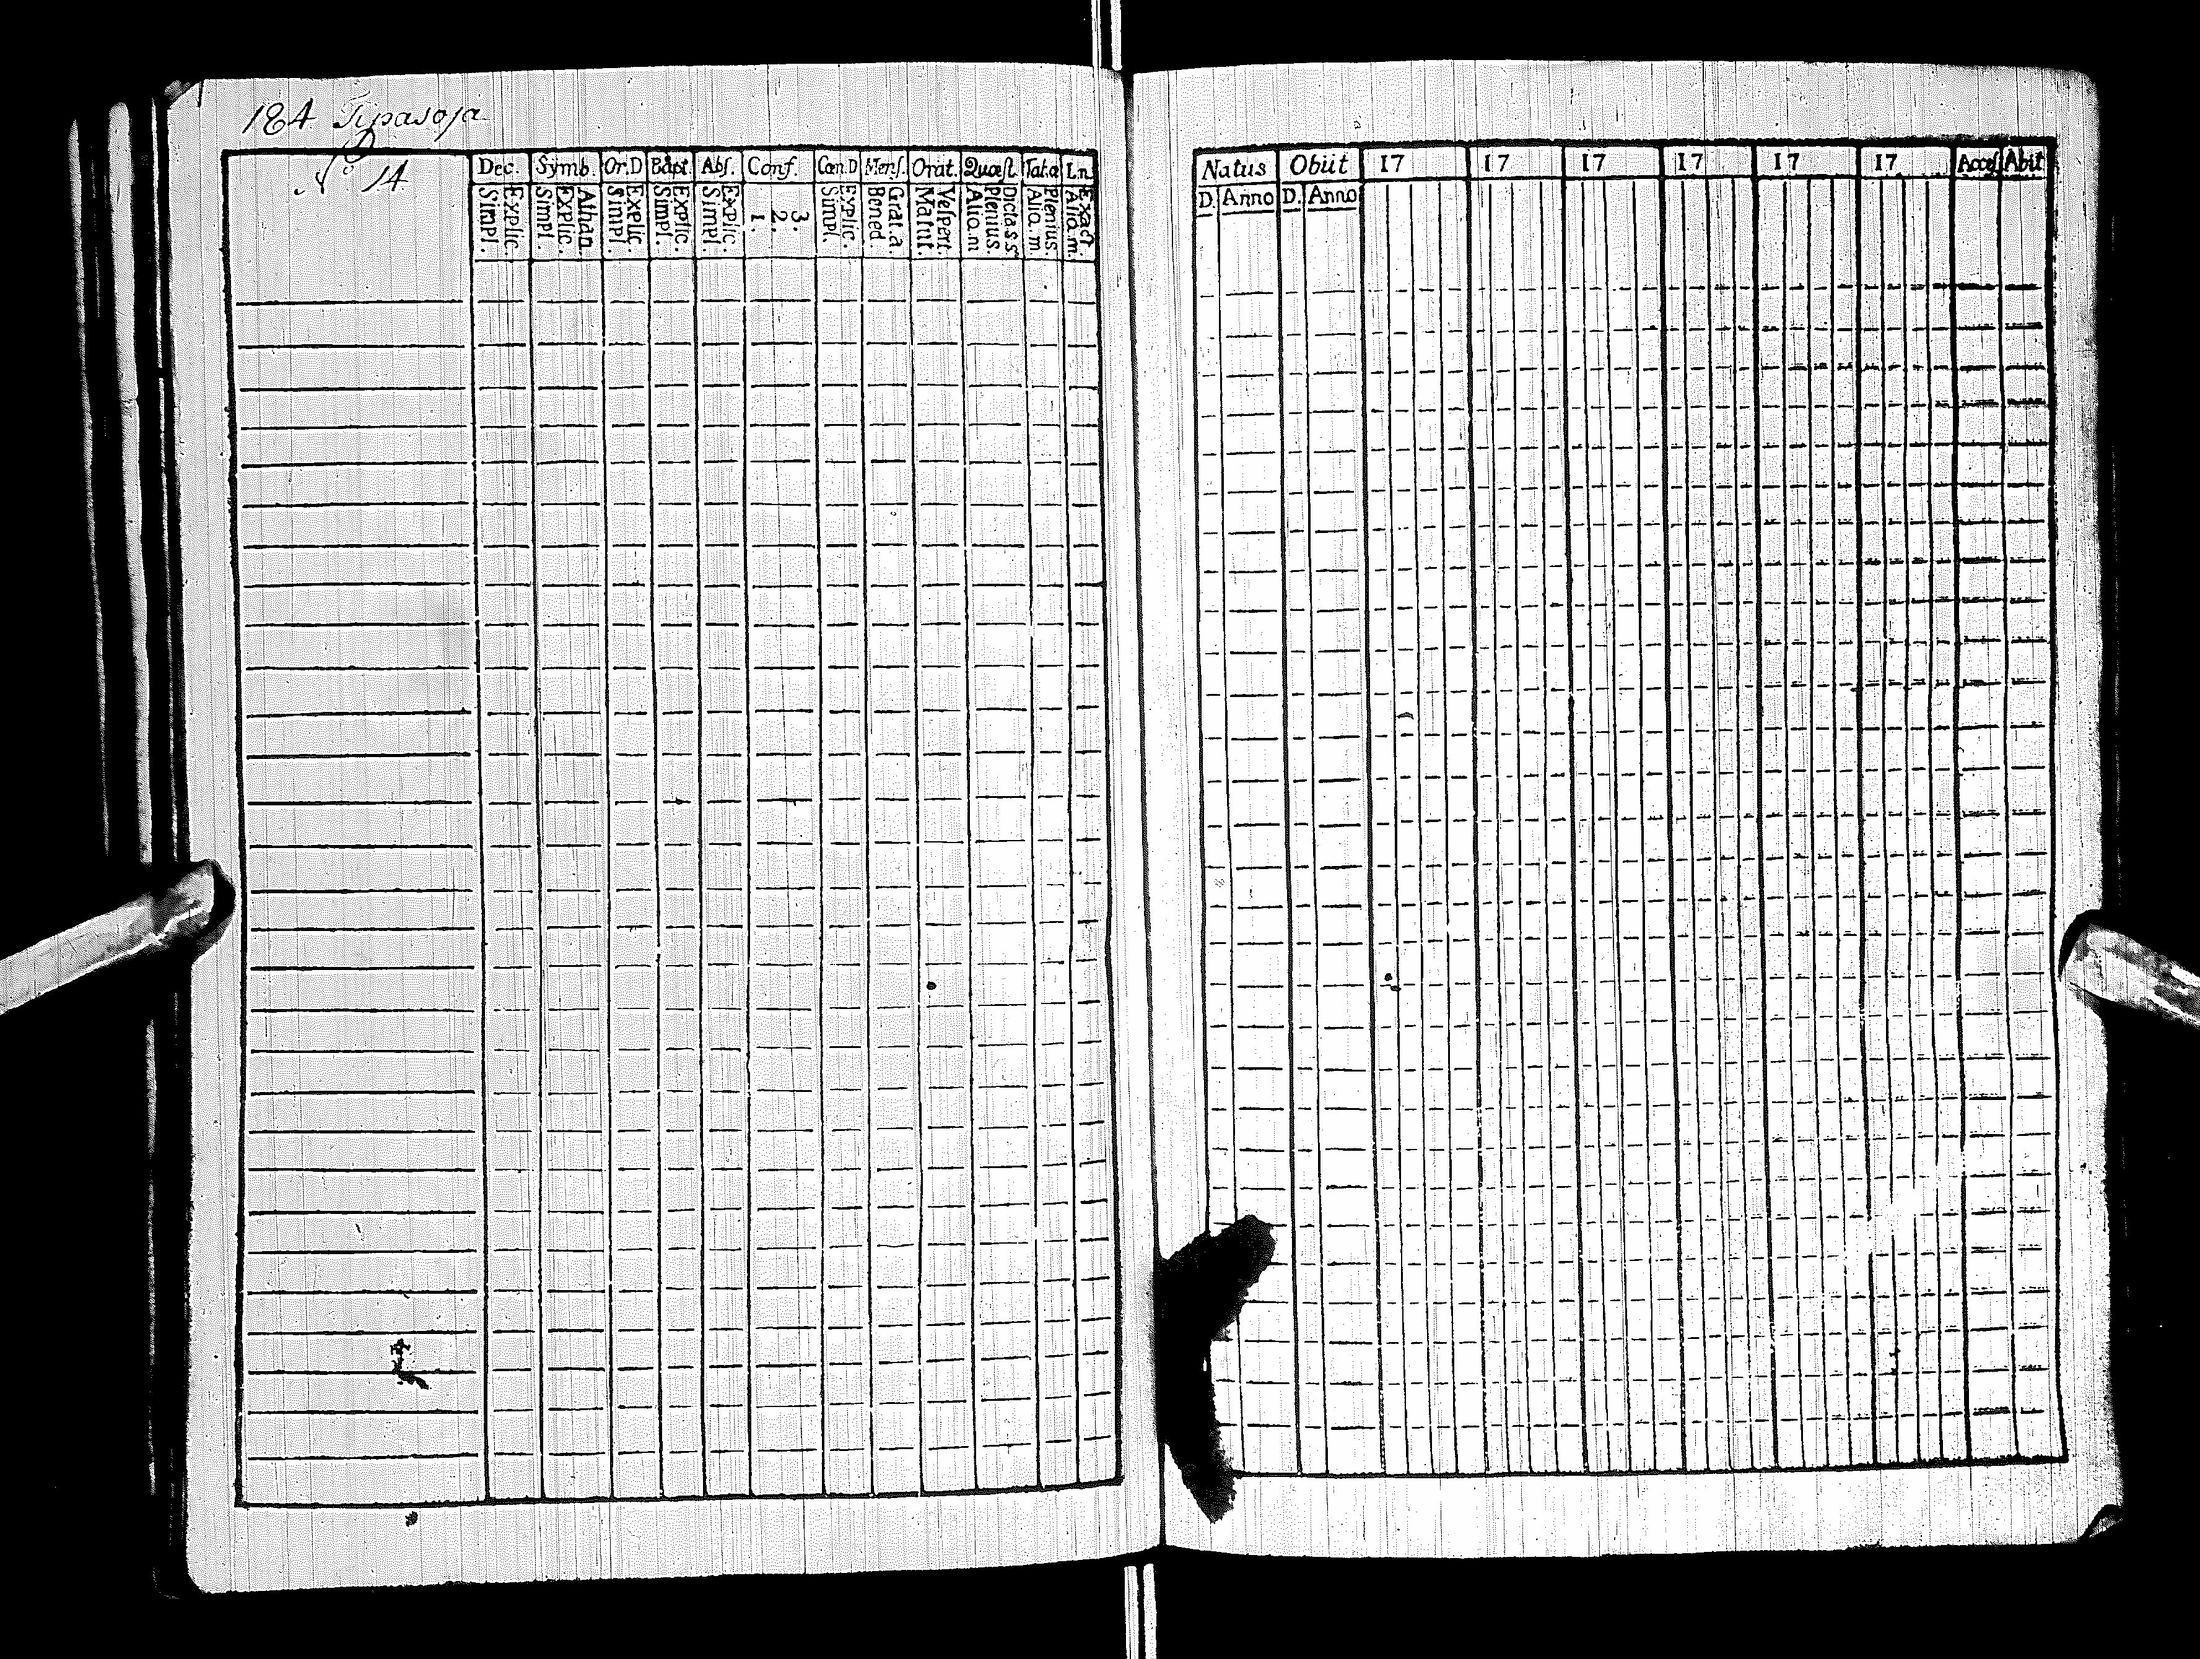 184 Tipasoja
No 14
Dec. Symb. Or.D Bapt. Abs. Conf. Cœn.D Mens. Orat. Quæst. Tat.a Ln.
Explic. Simpl.
Athan. Explic. Simpl.
Explic. Simpl.
Explic. Simpl.
Explic. Simpl.
3. 2. 1.
Explic. Simpl.
Grat.a. Bened.
Vespert. Matut.
Dictass. Plenius. Aliq.m
Plenius. Aliq.m.
Exact Aliq.m.
Natus Obiit 17 17 17 17 17 17 Acces Abit
D. Anno D. Anno